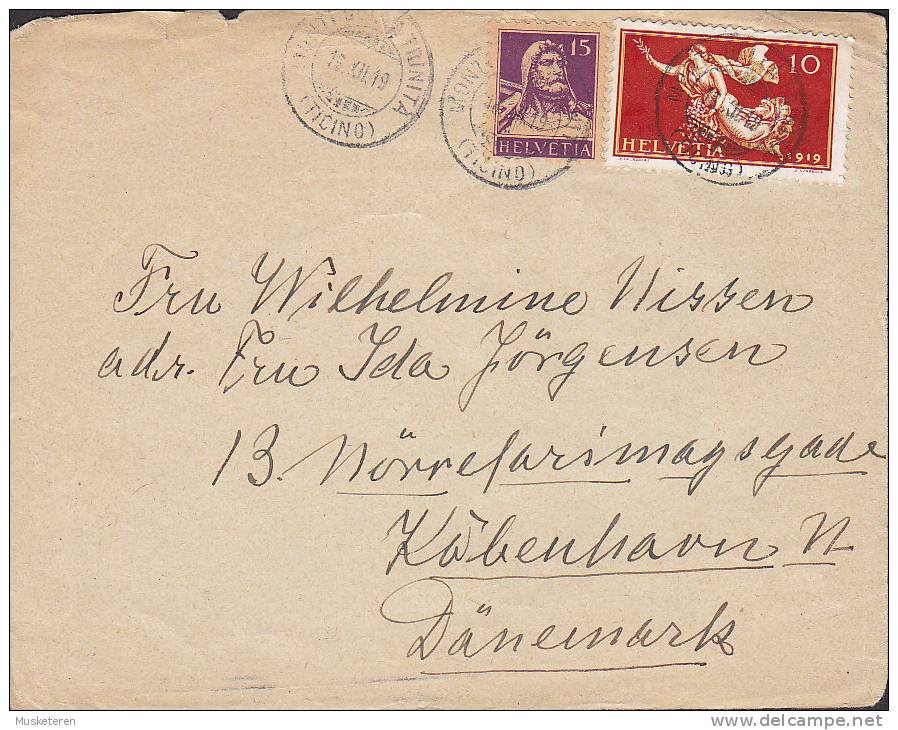 TRINITA
16.XII.19
(TICINO)
MONTE
(TICINO)
15
HELVETIA
10
HELVETIA
1919
Fru Wilhelmine Nissen
adr. Fru Ida Jörgensen
13. Nörrefarimagsgade
Köbenhavn N
Dänemark
Musketeren
www.delcampe.net